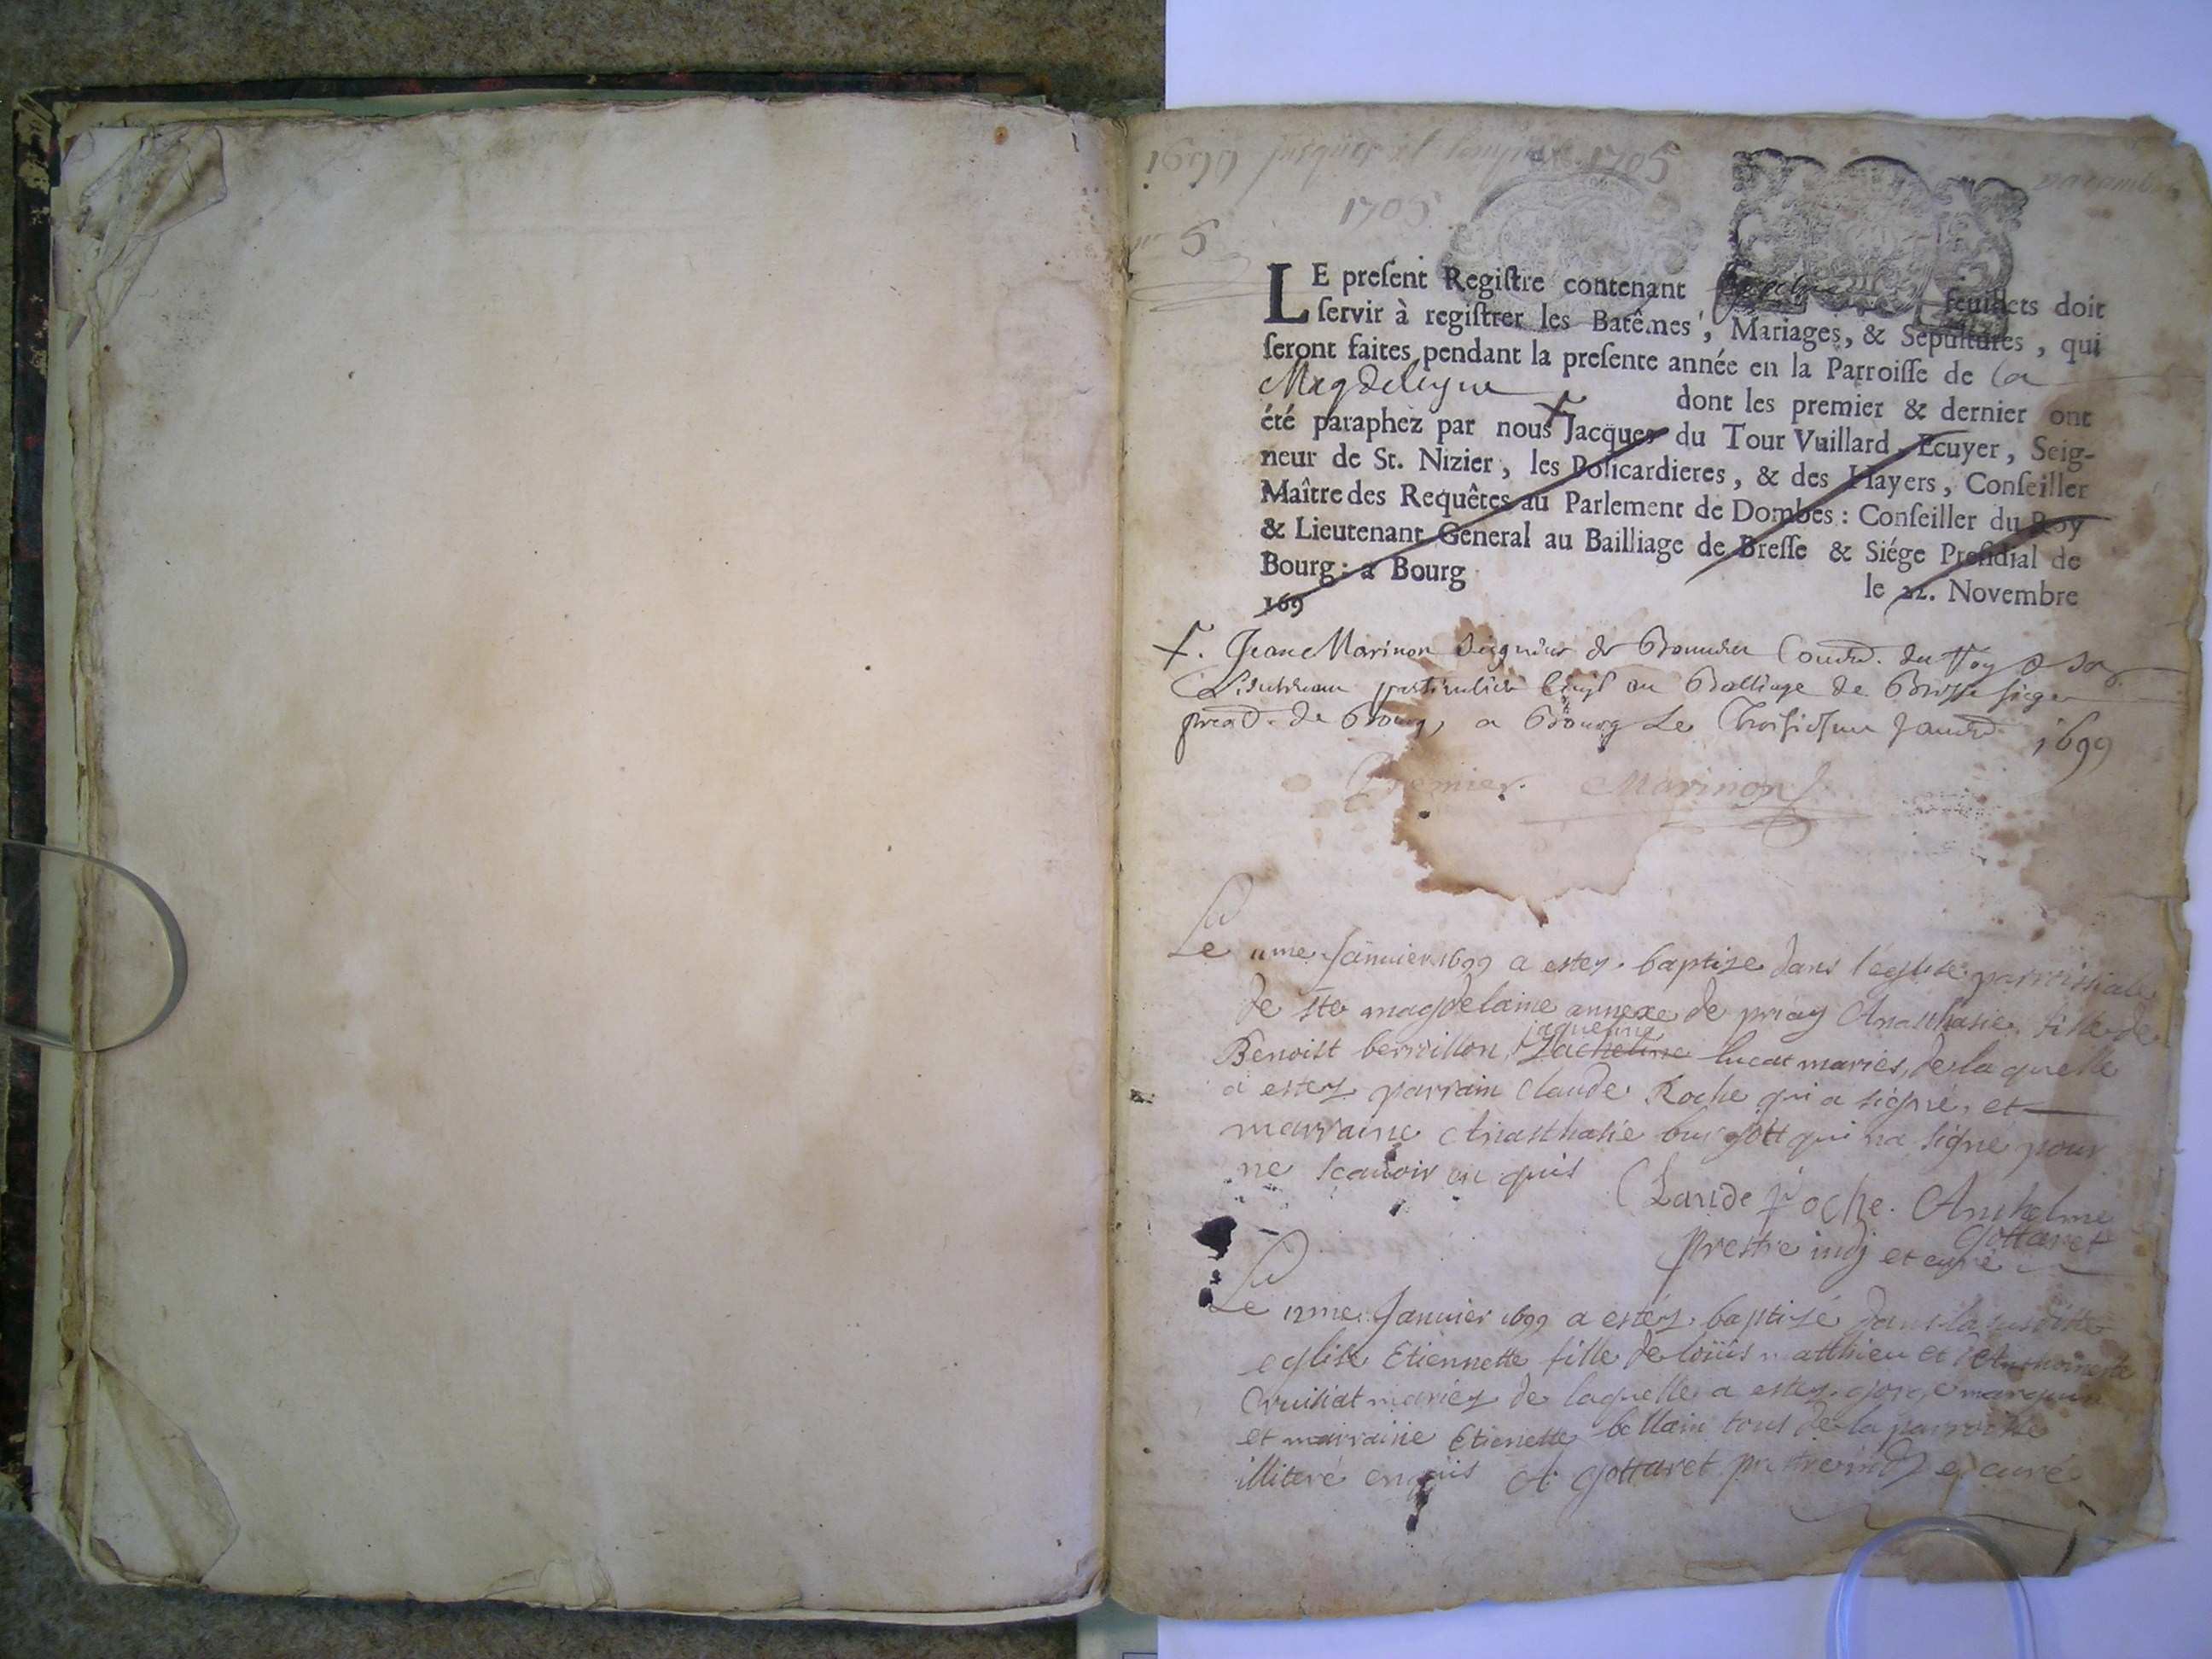 1699 jusques et 1705
1705
5
LE preſent Regiſtre contenant feuillets doit
ſervir à regiſtrer les Batêmes, Mariages, & Sepultures, qui
ſeront faites pendant la preſente année en la Parroiſſe de la
Magdeleyne dont les premier & dernier ont
été paraphez par nous Jacques du Tour Vuillard, Ecuyer, Seig-
neur de St. Nizier, les Policardieres, & des Hayers, Conſeiller
Maître des Requêtes au Parlement de Dombes: Conſeiller du Roy
& Lieutenant General au Bailliage de Breſſe & Siége Preſidial de
Bourg: à Bourg le 22. Novembre
169
Jean Marinon Seigneur de du Roy
particulier au Balliage de Bresse siege
de Bourg, a Bourg Le Troisiesme 1699
Premier. Marinon
Le 11me Januier 1699 a estez baptize dans l'eglise parroissiale
de Ste magdelaine annexe de priay Anasthasie fille de
jaqueline
Benoist berroillon, Jacheline lucat maries, de laquelle
a estez parrain Claude Roche qui a signé, et
marraine Anasthasie qui na signé pour
ne scauoir en quis Claude Roche. Anthelme
Gottaret
prestre indj et curé
Le 12me Januier 1699 a estéz baptizé dans la susditte
eglise Etiennette fille de loüis matthieu et Anthoinette
Cruisiat mariez de laquelle a estez
et marraine Etienette bellain tous de la parroisse
illiteré enquis A Gottaret prestre indj et curé